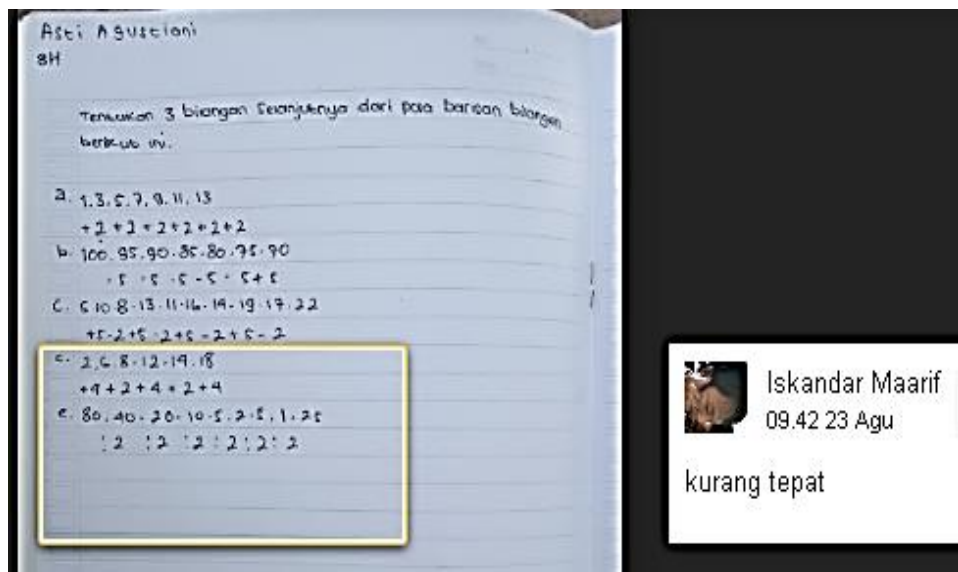 Asti Agustiani
8H
Tentukan 3 biangan Selanjutnya dari pola barisan bilangan
berikut ini.
a. 1.3.5.7.9.11.13
+2+2+2+2+2+2
b. 100.95.90.85.80.75.70
-5-5-5-5-5
c. 5 10 8-13-11-16-14-19-17-22
+5-2+5-2+5-2+5-2
2.6.8.12.14.18
+4+2+4+2+4
e. 80.40.20.10.5.2.5.1.25
:2 :2 :2:2:2:2
Iskandar Maarif
09.42 23 Agu
kurang tepat